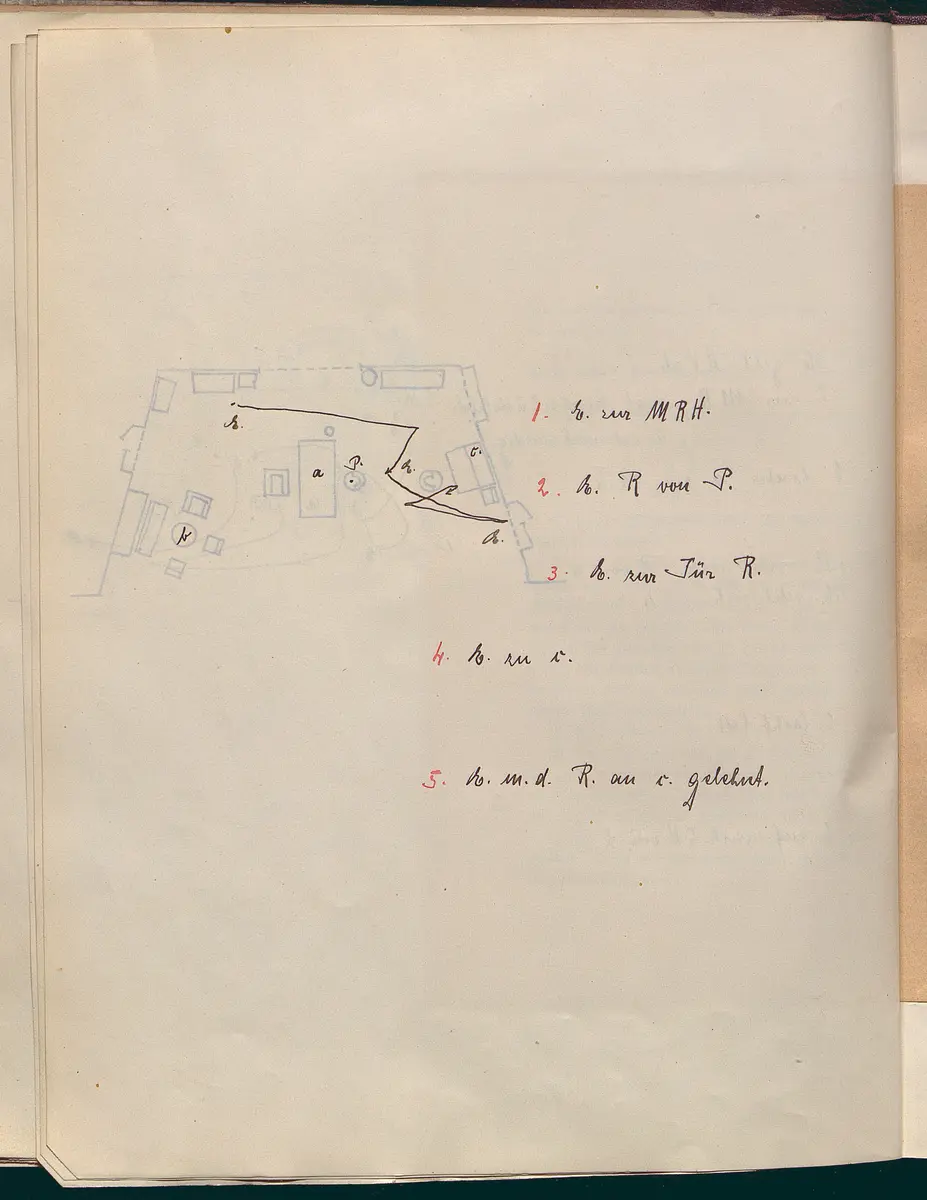 E.
a
P.
E.
c.
b
E.
1. E. zur M R H.
2. E. R von P.
3. E. zur Tür R.
4. E. zu c.
5. E. m. d. R. an c. gelehnt.